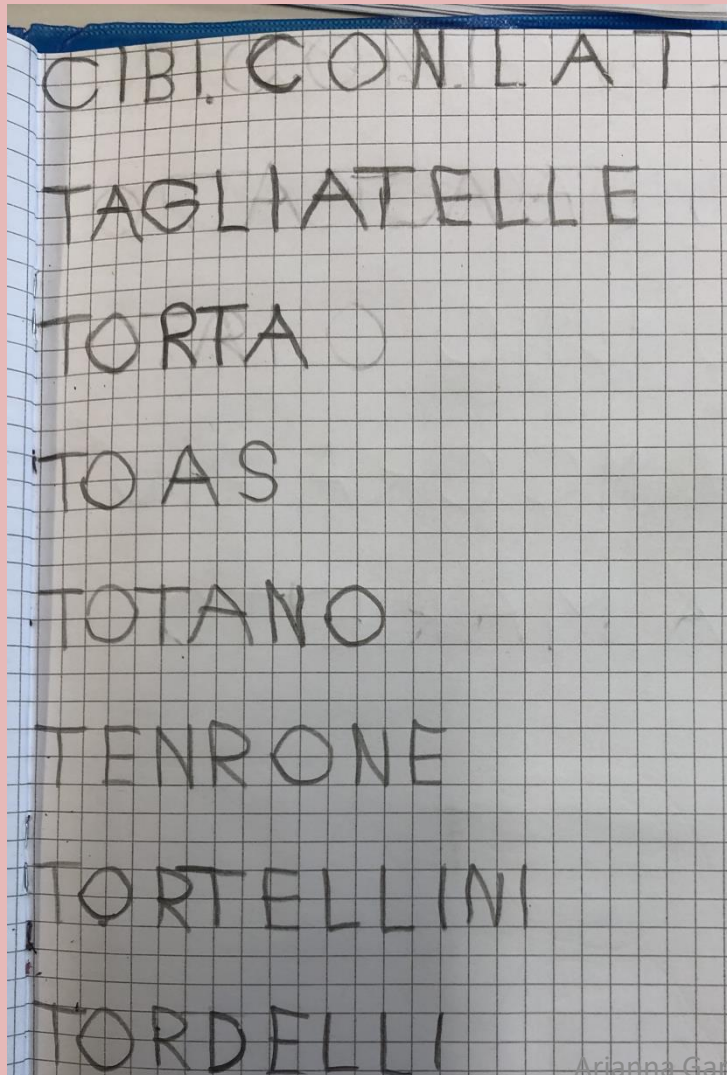 CIBI. CON. LAT
TAGLIATELLE
TORTA
TOAS
TOTANO
TENRONE
TORTELLINI
TORDELLI
Arianna